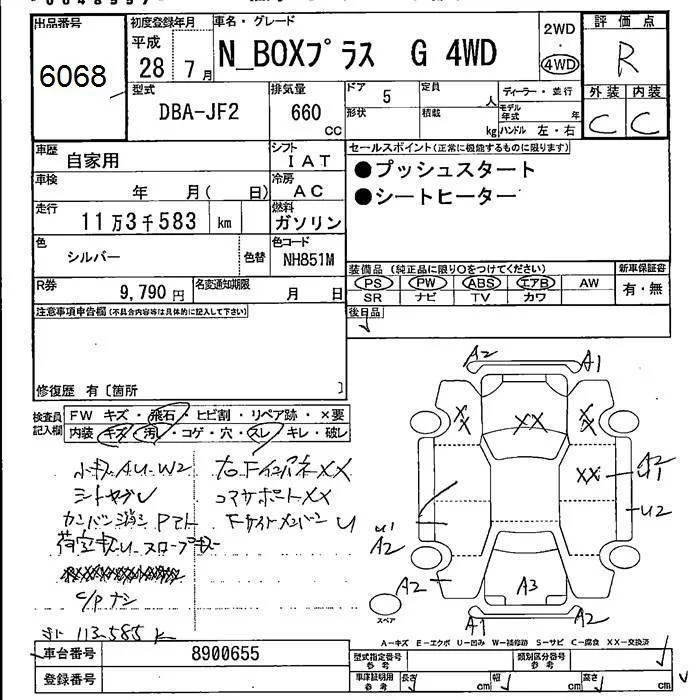 出品番号
6068
初度登録年月
平成
28 7月
車名・グレード
N_BOXプラス G 4WD
2WD
・
4WD
評価点
R
外装 内装
C C
型式
DBA-JF2
排気量
660
CC
ドア
5
定員
人
形状
積載
kg
ディーラー・並行
モデル年式 年
ハンドル 左・右
車歴
自家用
シフト
IAT
車検
年 月( 日)
冷房
AC
走行
11万3千583 km
燃料
ガソリン
色
シルバー
色替
色コード
NH851M
R券
9,790 円
名変通知期限
月 日
セールスポイント(正常に機能するものに限ります)
●プッシュスタート
●シートヒーター
装備品 (純正品に限り○をつけてください)
PS PW ABS エアB AW
SR ナビ TV カワ
新車保証書
有・無
後日品
注意事項申告欄(不具合内容等は具体的に記入して下さい)
修復歴 有〔箇所 〕
検査員記入欄
FW キズ・飛石・ヒビ割・リペア跡・×要
内装 キズ・汚レ・コゲ・穴・スレ・キレ・破レ
小キズAU-W2
右FインパネXX
シートヤブレ
コアサポートXX
カンバン消シ Pマト
FサイドメンバーU
荷室キズU
C/Pナシ
113585K
A2 A1
XX XX XX
XX
A2
U1
U2
U1
A2
A2
A3
A1 A2
スペア
A-キズ E-エクボ U-凹み W-補修跡 S-サビ C-腐食 XX-交換済
車台番号
8900655
登録番号
型式指定番号
参考
類別区分番号
参考
車庫証明用
参考
長さ cm 幅 cm 高さ cm